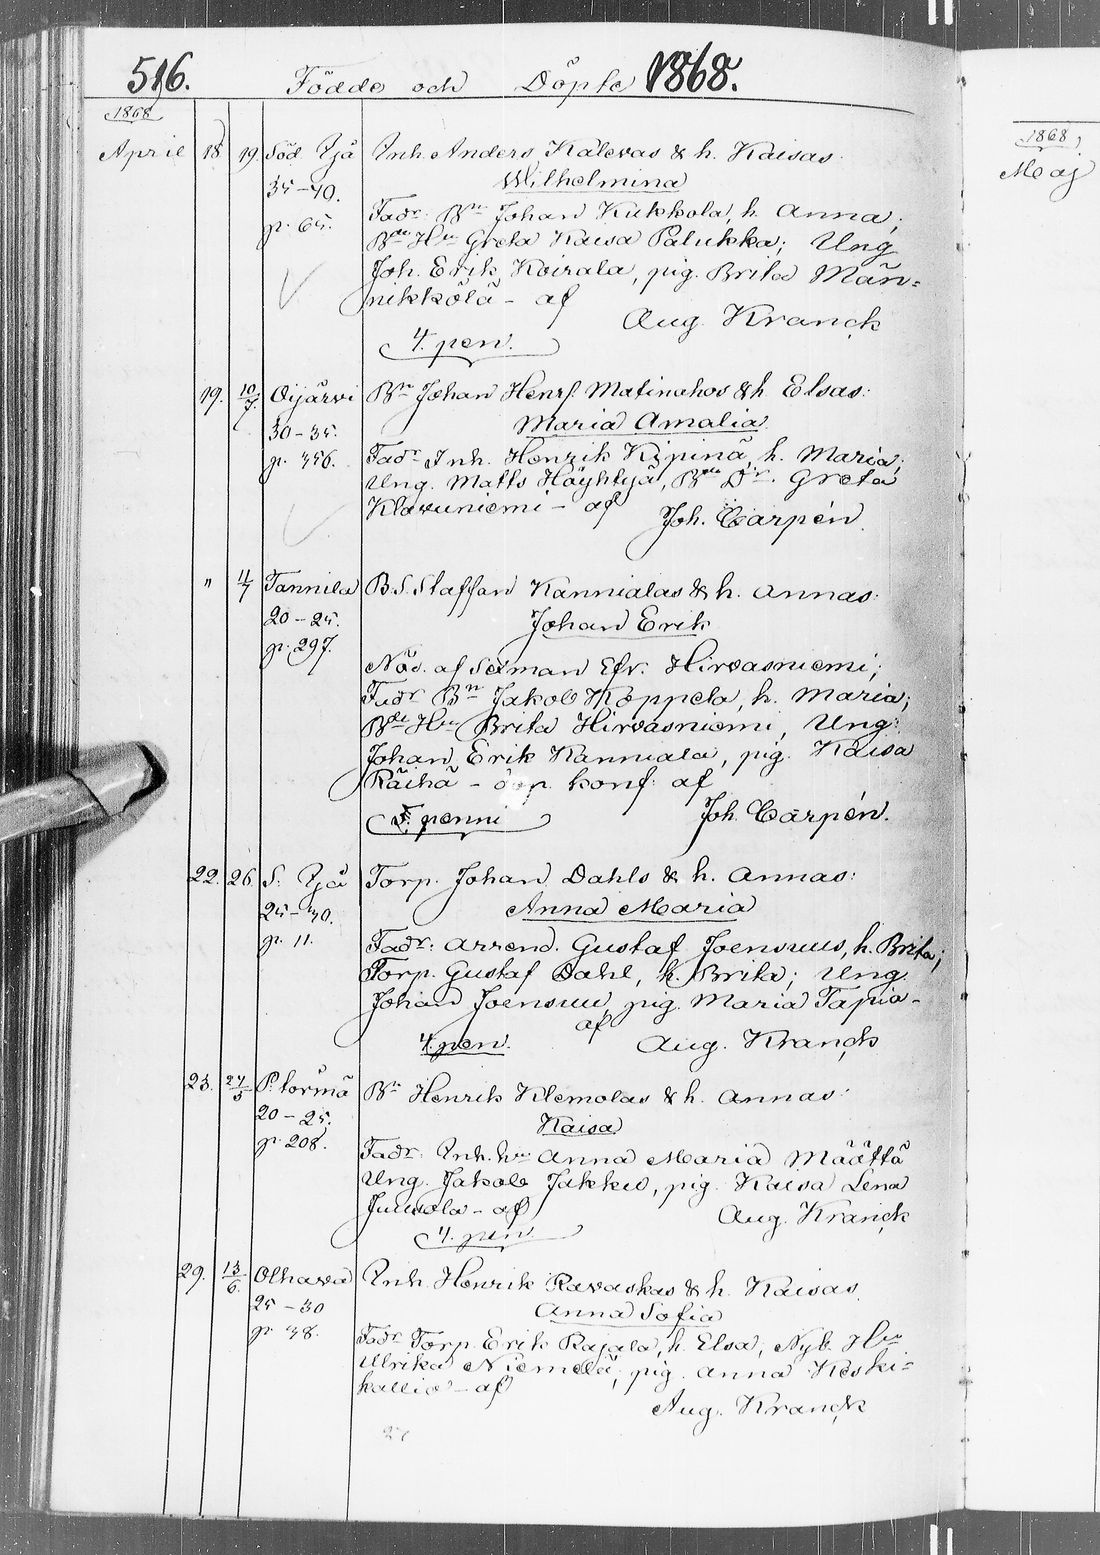 516. Födde och Döpte 1868.
1868
April 18 19 Söd Ijå Inh. Anders Kälevas & h. Kaisas:
35-40. Wilhelmina
p. 65. Fadr: Bn Johan Kukkola, h. Anna;
Bde Hu Greta Kaisa Palukka; Ung
Joh. Erik Koirala, pig. Brita Män-
nikkölä - af
Aug. Kranck
4. pen.
19. 10/7. Oijärvi Bn Johan Henr. Matinahos & h. Elsas:
30-35. Maria Amalia
p. 356. Fadr Inh. Henrik Kipinä, h. Maria;
Ung. Matts Höyhtyä, Bde Dr. Greta
Klavuniemi - af
Joh. Carpén.
" 11/7 Tannila B.S. Staffan Kannialas & h. Annas:
20-25. Johan Erik
p. 297.
Nöd. af Salman Efr. Hirvasniemi;
Fadr Bn Jakob Koppela, h. Maria;
Bde Hu Brita Hirvasniemi, Ung:
Johan Erik Kanniala, pig. Kaisa
Räihä - dop. konf. af
5. penni Joh. Carpén.
22. 26. S. Ijå Torp. Johan Dahls & h. Annas:
25-30. Anna Maria
p. 11. Fadr: Arrend. Gustaf Joensuus, h. Brita;
Torp. Gustaf Dahl, h. Brita; Ung.
Johan Joensuu, pig. Maria Tapio -
af
4. pen. Aug. Kranck
23. 24/5 P. Bn Henrik Klemolas & h. Annas:
20-25. Kaisa
p. 208. Fadr: Inh. hu Anna Maria Määttä
Ung. Jakob Jakku, pig. Kaisa Lena
Juusola - af
Aug. Kranck
4. pen.
29. 13/6. Olhava Inh. Henrik Ravaskas & h. Kaisas.
25-30 Anna Sofia
p. 38. Fadr Torp. Erik Rajala, h. Elsa; Nyb. Hu
Ulrika Niemelä; pig. Anna Keski-
kallio - af
Aug. Kranck
1868
Maj